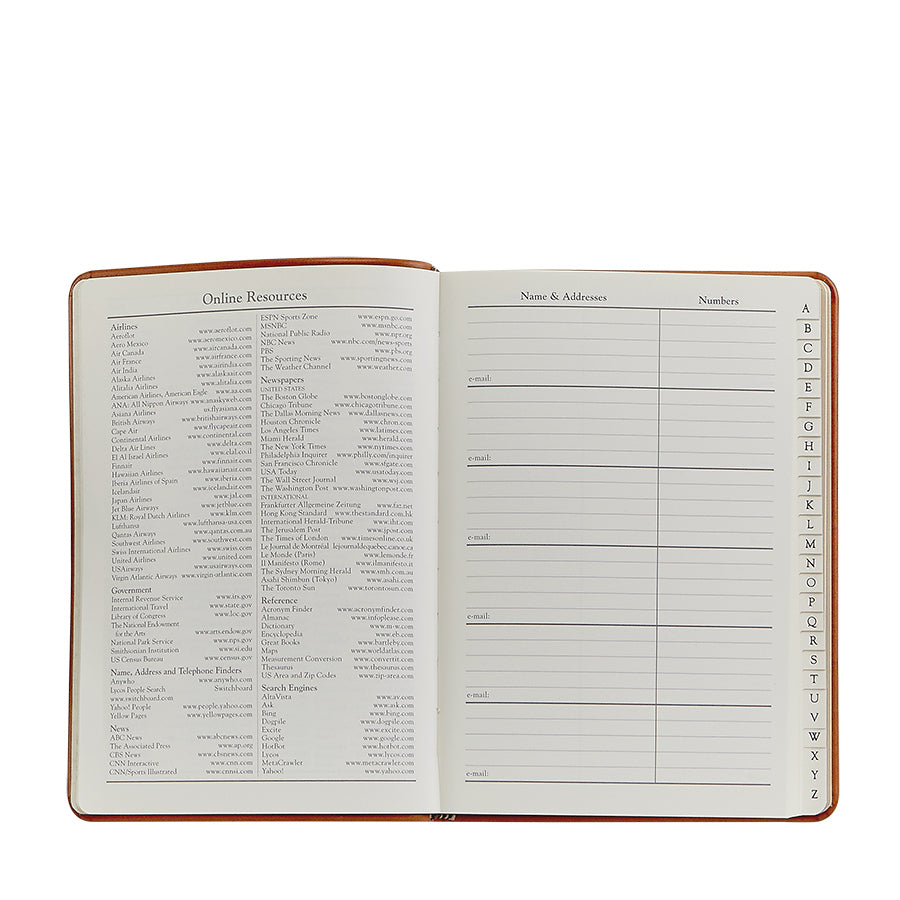 Online Resources
Airlines
Aeroflot www.aeroflot.com
Aero Mexico www.aeromexico.com
Air Canada www.aircanada.com
Air France www.airfrance.com
Air India www.airindia.com
Alaska Airlines www.alaskaair.com
Alitalia Airlines www.alitalia.com
American Airlines, American Eagle www.aa.com
ANA: All Nippon Airways www.anaskyweb.com
Asiana Airlines us.flyasiana.com
British Airways www.britishairways.com
Cape Air www.flycapeair.com
Continental Airlines www.continental.com
Delta Air Lines www.delta.com
El Al Israel Airlines www.elal.co.il
Finnair www.finnair.com
Hawaiian Airlines www.hawaiianair.com
Iberia Airlines of Spain www.iberia.com
Icelandair www.icelandair.com
Japan Airlines www.jal.com
Jet Blue Airways www.jetblue.com
KLM: Royal Dutch Airlines www.klm.com
Lufthansa www.lufthansa-usa.com
Qantas Airways www.qantas.com.au
Southwest Airlines www.southwest.com
Swiss International Airlines www.swiss.com
United Airlines www.united.com
USAirways www.usairways.com
Virgin Atlantic Airways www.virgin-atlantic.com
Government
Internal Revenue Service www.irs.gov
International Travel www.state.gov
Library of Congress www.loc.gov
The National Endowment
for the Arts www.arts.endow.gov
National Park Service www.nps.gov
Smithsonian Institution www.si.edu
US Census Bureau www.census.gov
Name, Address and Telephone Finders
Anywho www.anywho.com
Lycos People Search Switchboard
www.switchboard.com
Yahoo! People www.people.yahoo.com
Yellow Pages www.yellowpages.com
News
ABC News www.abcnews.com
The Associated Press www.ap.org
CBS News www.cbsnews.com
CNN Interactive www.cnn.com
CNN/Sports Illustrated www.cnnsi.com
ESPN Sports Zone www.espn.go.com
MSNBC www.msnbc.com
National Public Radio www.npr.org
NBC News www.nbc.com/news-sports
PBS www.pbs.org
The Sporting News www.sportingnews.com
The Weather Channel www.weather.com
Newspapers
UNITED STATES
The Boston Globe www.bostonglobe.com
Chicago Tribune www.chicagotribune.com
The Dallas Morning News www.dallasnews.com
Houston Chronicle www.chron.com
Los Angeles Times www.latimes.com
Miami Herald www.herald.com
The New York Times www.nytimes.com
Philadelphia Inquirer www.philly.com/inquirer
San Francisco Chronicle www.sfgate.com
USA Today www.usatoday.com
The Wall Street Journal www.wsj.com
The Washington Post www.washingtonpost.com
INTERNATIONAL
Frankfurter Allgemeine Zeitung www.faz.net
Hong Kong Standard www.thestandard.com.hk
International Herald-Tribune www.iht.com
The Jerusalem Post www.jpost.com
The Times of London www.timesonline.co.uk
Le Journal de Montréal lejournaldequebec.canoe.ca
Le Monde (Paris) www.lemonde.fr
Il Manifesto (Rome) www.ilmanifesto.it
The Sydney Morning Herald www.smh.com.au
Asahi Shimbun (Tokyo) www.asahi.com
The Toronto Sun www.torontosun.com
Reference
Acronym Finder www.acronymfinder.com
Almanac www.infoplease.com
Dictionary www.m-w.com
Encyclopedia www.eb.com
Great Books www.bartleby.com
Maps www.worldatlas.com
Measurement Conversion www.convertit.com
Thesaurus www.thesaurus.com
US Area and Zip Codes www.zip-area.com
Search Engines
AltaVista www.av.com
Ask www.ask.com
Bing www.bing.com
Dogpile www.dogpile.com
Excite www.excite.com
Google www.google.com
HotBot www.hotbot.com
Lycos www.lycos.com
MetaCrawler www.metacrawler.com
Yahoo! www.yahoo.com
Name & Addresses Numbers
e-mail:
e-mail:
e-mail:
e-mail:
e-mail:
e-mail:
A
B
C
D
E
F
G
H
I
J
K
L
M
N
O
P
Q
R
S
T
U
V
W
X
Y
Z